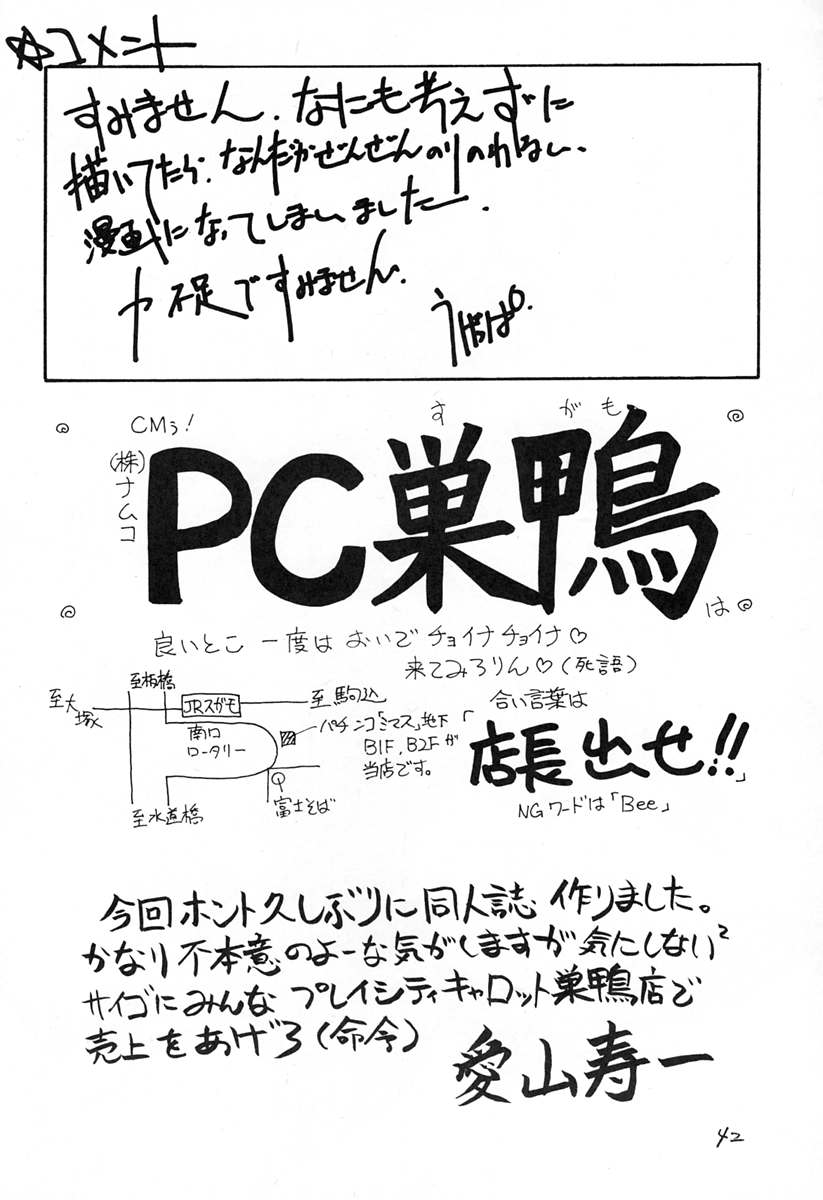 ☆コメント
すみません。なにも考えずに
描いてたら、なんだかぜんぜんのりのわるい、
漫画になってしまいました。
力不足ですみません。
CMぅ!
(株)ナムコ
すがも
PC巣鴨
は
良いとこ 一度は おいで チョイナチョイナ♡
来てみろりん♡(死語)
至大塚
至板橋
JRスがも
至 駒込
南口
ロータリー
パチンコ「ミマス」地下
B1F,B2Fが
当店です。
至水道橋
富士そば
合い言葉は
「店長出せ!!」
NGワードは「Bee」
今回ホント久しぶりに同人誌 作りました。
かなり不本意のよーな気がしますが気にしない²
サイゴにみんな プレイシティキャロット巣鴨店で
売上をあげろ(命令)
愛山寿一
42